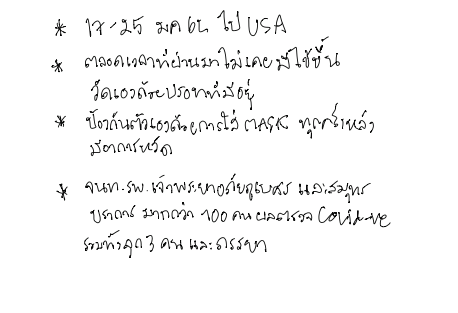 * 17-25 มค 64 ไป USA
* ตลอดเวลาที่ผ่านมาไม่เคยมีไข้ขึ้น
วัดเองด้วยปรอทที่มีอยู่
* ป้องกันตัวเองด้วยการใส่ MASK ทุกครั้งหลัง
มีอาการหวัด
* จนท.รพ.เจ้าพระยาอภัยภูเบศร และสมุทร
ปราการ มากกว่า 100 คน ผลตรวจ Covid -ve
รวมทั้งลูก 3 คน และภรรยา